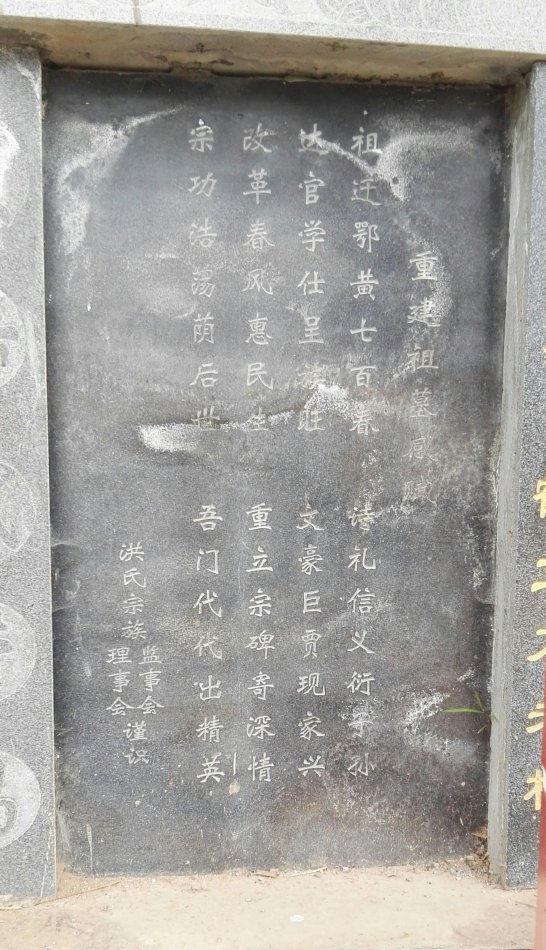 重建祖墓感赋
祖迁鄂黄七百春 诗礼信义衍子孙
达官学仕呈族旺 文豪巨贾现家兴
改革春风惠民生 重立宗碑寄深情
宗功浩荡荫后世 吾门代代出精英
洪氏宗族监事会理事会谨识